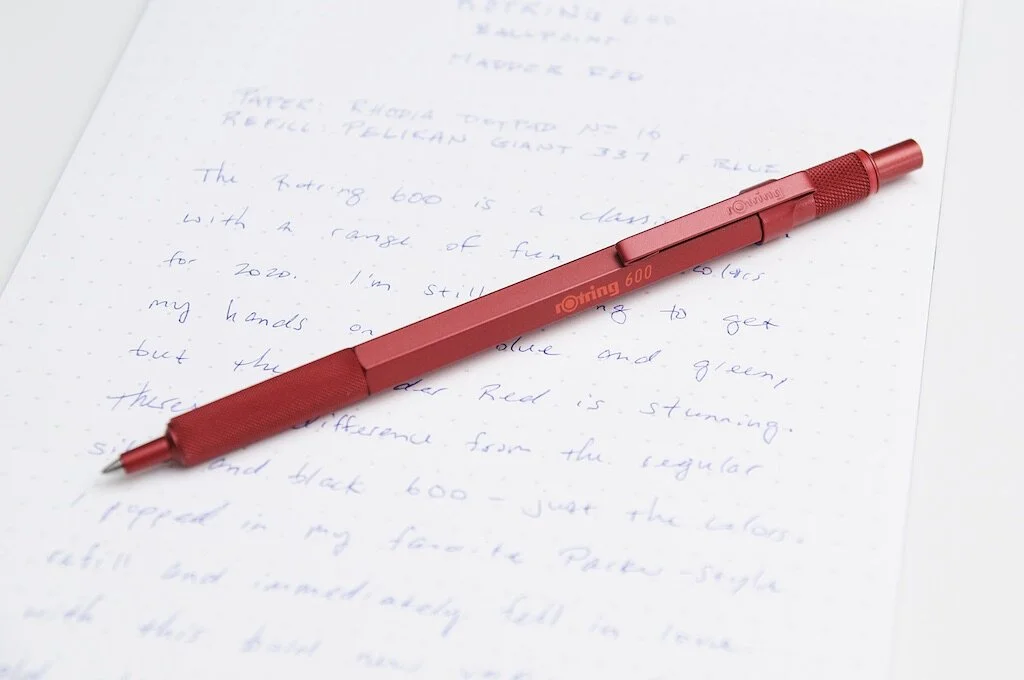 ROTRING 600
BALLPOINT
MADDER RED
PAPER: RHODIA DOTPAD Nº 16
REFILL: PELIKAN GIANT 337 F BLUE
The Rotring 600 is a
with a range of fun colors
for 2020. I'm still ng to get
my hands on blue and green,
but the der Red is stunning.
There difference from the regular
and black 600 - just the colors.
I popped in my favorite Parker-Style
refill and immediately fell in love
with this bold new
rotring
rotring 600